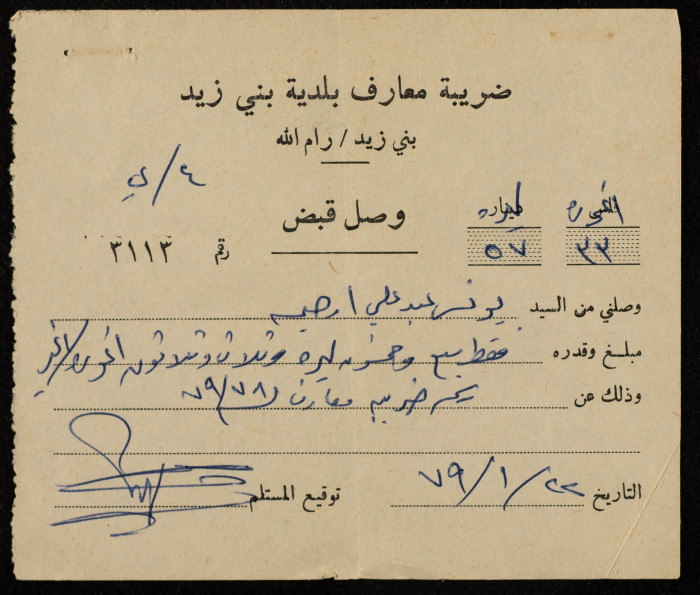 ضريبة معارف بلدية بني زيد
بني زيد / رام الله
٤/ي
وصل قبض
اغوره ليره
٣٣ ٥٧
رقم ٣١١٣
وصلني من السيد يونس عبد علي
مبلغ وقدره فقط سبع وخمسون ليره وثلاث وثلاثون اغوره
وذلك عن ضريبه معارف ٧٩/٧٨
التاريخ ٧٩/١/٢٢ توقيع المستلم